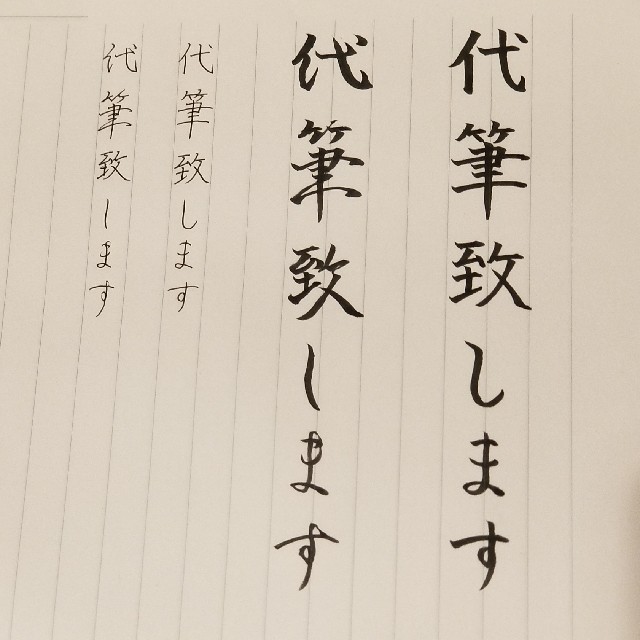 代筆致します
代筆致します
代筆致します
代筆致します